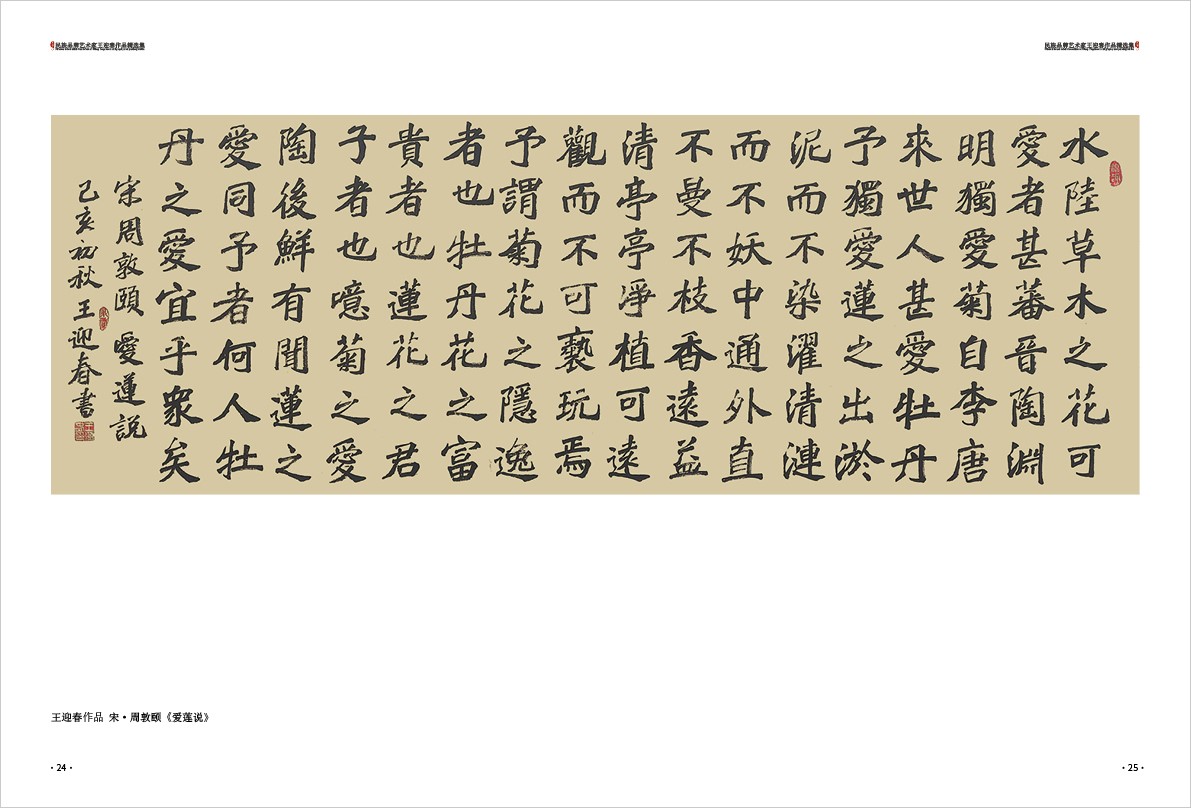 民族品牌艺术家王迎春作品精选集
民族品牌艺术家王迎春作品精选集
水陸草木之花可
愛者甚蕃晉陶淵
明獨愛菊自李唐
來世人甚愛牡丹
予獨愛蓮之出淤
泥而不染濯清漣
而不妖中通外直
不曼不枝香遠益
清亭亭淨植可遠
觀而不可褻玩焉
予謂菊花之隱逸
者也牡丹花之富
貴者也蓮花之君
子者也噫菊之愛
陶後鮮有聞蓮之
愛同予者何人牡
丹之愛宜乎衆矣
宋周敦頤愛蓮説
己亥初秋王迎春書
王迎春作品 宋·周敦颐《爱莲说》
·24·
·25·